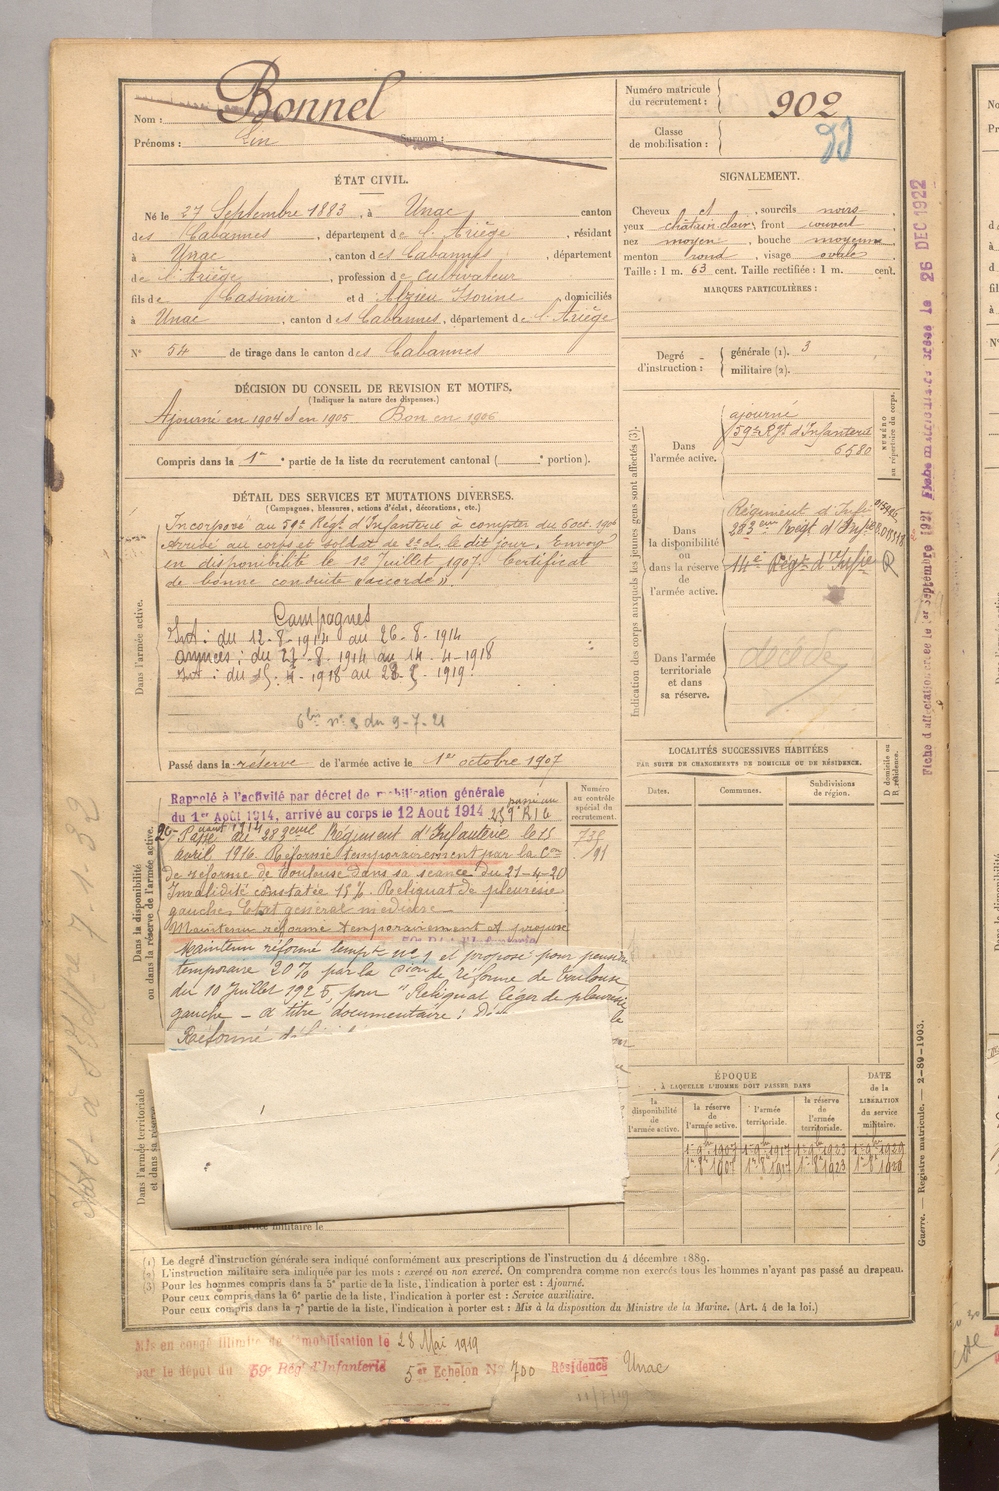 Nom : Bonnel
Prénoms : Lin Surnom :
Numéro matricule du recrutement : 902
Classe de mobilisation :
ÉTAT CIVIL.
Né le 27 Septembre 1883, à Unac canton
des Cabannes, département de l'Ariège, résidant
à Unac, canton des Cabannes, département
de l'Ariège, profession de cultivateur
fils de Casimir et d'Alzieu Isoline, domiciliés
à Unac, canton des Cabannes, département de l'Ariège
N° 54 de tirage dans le canton des Cabannes
SIGNALEMENT.
Cheveux et, sourcils noirs,
yeux châtain clair, front couvert
nez moyen, bouche moyenne
menton rond, visage ovale
Taille : 1 m. 63 cent. Taille rectifiée : 1 m. cent.
MARQUES PARTICULIÈRES :
Degré d'instruction : générale (1). 3
militaire (2).
DÉCISION DU CONSEIL DE REVISION ET MOTIFS.
(Indiquer la nature des dispenses.)
Ajourné en 1904 et en 1905 Bon en 1906
Compris dans la 1re partie de la liste du recrutement cantonal ( e portion).
DÉTAIL DES SERVICES ET MUTATIONS DIVERSES.
(Campagnes, blessures, actions d'éclat, décorations, etc.)
Dans l'armée active.
Incorporé au 59e Régt d'Infanterie à compter du 6 oct. 1906
Arrivé au corps et soldat de 2e cl. le dit jour. Envoyé
en disponibilité le 12 juillet 1907. Certificat
de bonne conduite "accordé".
Campagnes
Int : du 12-8-1914 au 26-8-1914
armées : du 27-8-1914 au 14-4-1918
Int : du 15-4-1918 au 28-5-1919.
n° 3 du 9-7-21
Passé dans la réserve de l'armée active le 1er octobre 1907
Indication des corps auxquels les jeunes gens sont affectés (3).
Dans l'armée active.
ajourné
59e Rgt d'Infanterie
6580
NUMÉRO au répertoire du corps.
Dans la disponibilité ou dans la réserve de l'armée active.
Régiment d'Infie
283eme Régt d'Infie
14e Régt d'Infie
Dans l'armée territoriale et dans sa réserve.
décédé
LOCALITÉS SUCCESSIVES HABITÉES
PAR SUITE DE CHANGEMENTS DE DOMICILE OU DE RÉSIDENCE.
Dates. Communes. Subdivisions de région. D domicile ou R résidence.
Dans la disponibilité ou dans la réserve de l'armée active.
Numéro au contrôle spécial du recrutement.
Rappelé à l'activité par décret de mobilisation générale
du 1er Août 1914, arrivé au corps le 12 Août 1914
Passé au 283eme Régiment d'Infanterie le 15
avril 1916. Réformé temporairement par la Con
de réforme de Toulouse dans sa séance du 21-4-20
Invalidité constatée 15%. Reliquat de pleurésie
gauche. Etat général médiocre
Maintenu réformé temporairement et proposé
Maintenu réformé tempre n° 1 et proposé pour pension
temporaire 20% par la Con de réforme de Toulouse
du 10 Juillet 1925, pour "Reliquat léger de pleurésie
gauche - à titre documentaire :
Réformé
Dans l'armée territoriale et dans sa réserve
du service militaire le
ÉPOQUE
À LAQUELLE L'HOMME DOIT PASSER DANS
la disponibilité de l'armée active.
la réserve de l'armée active.
l'armée territoriale.
la réserve de l'armée territoriale.
DATE de la LIBÉRATION du service militaire.
(1) Le degré d'instruction générale sera indiqué conformément aux prescriptions de l'instruction du 4 décembre 1889.
(2) L'instruction militaire sera indiquée par les mots : exercé ou non exercé. On comprendra comme non exercés tous les hommes n'ayant pas passé au drapeau.
(3) Pour les hommes compris dans la 5e partie de la liste, l'indication à porter est : Ajourné.
Pour ceux compris dans la 6e partie de la liste, l'indication à porter est : Service auxiliaire.
Pour ceux compris dans la 7e partie de la liste, l'indication à porter est : Mis à la disposition du Ministre de la Marine. (Art. 4 de la loi.)
Mis en congé illimité de démobilisation le 28 Mai 1919
par le dépôt du 59e Régt d'Infanterie 5e Echelon N° 700 Résidence Unac
Guerre. — Registre matricule. — 2-89-1903.
26 DEC 1922